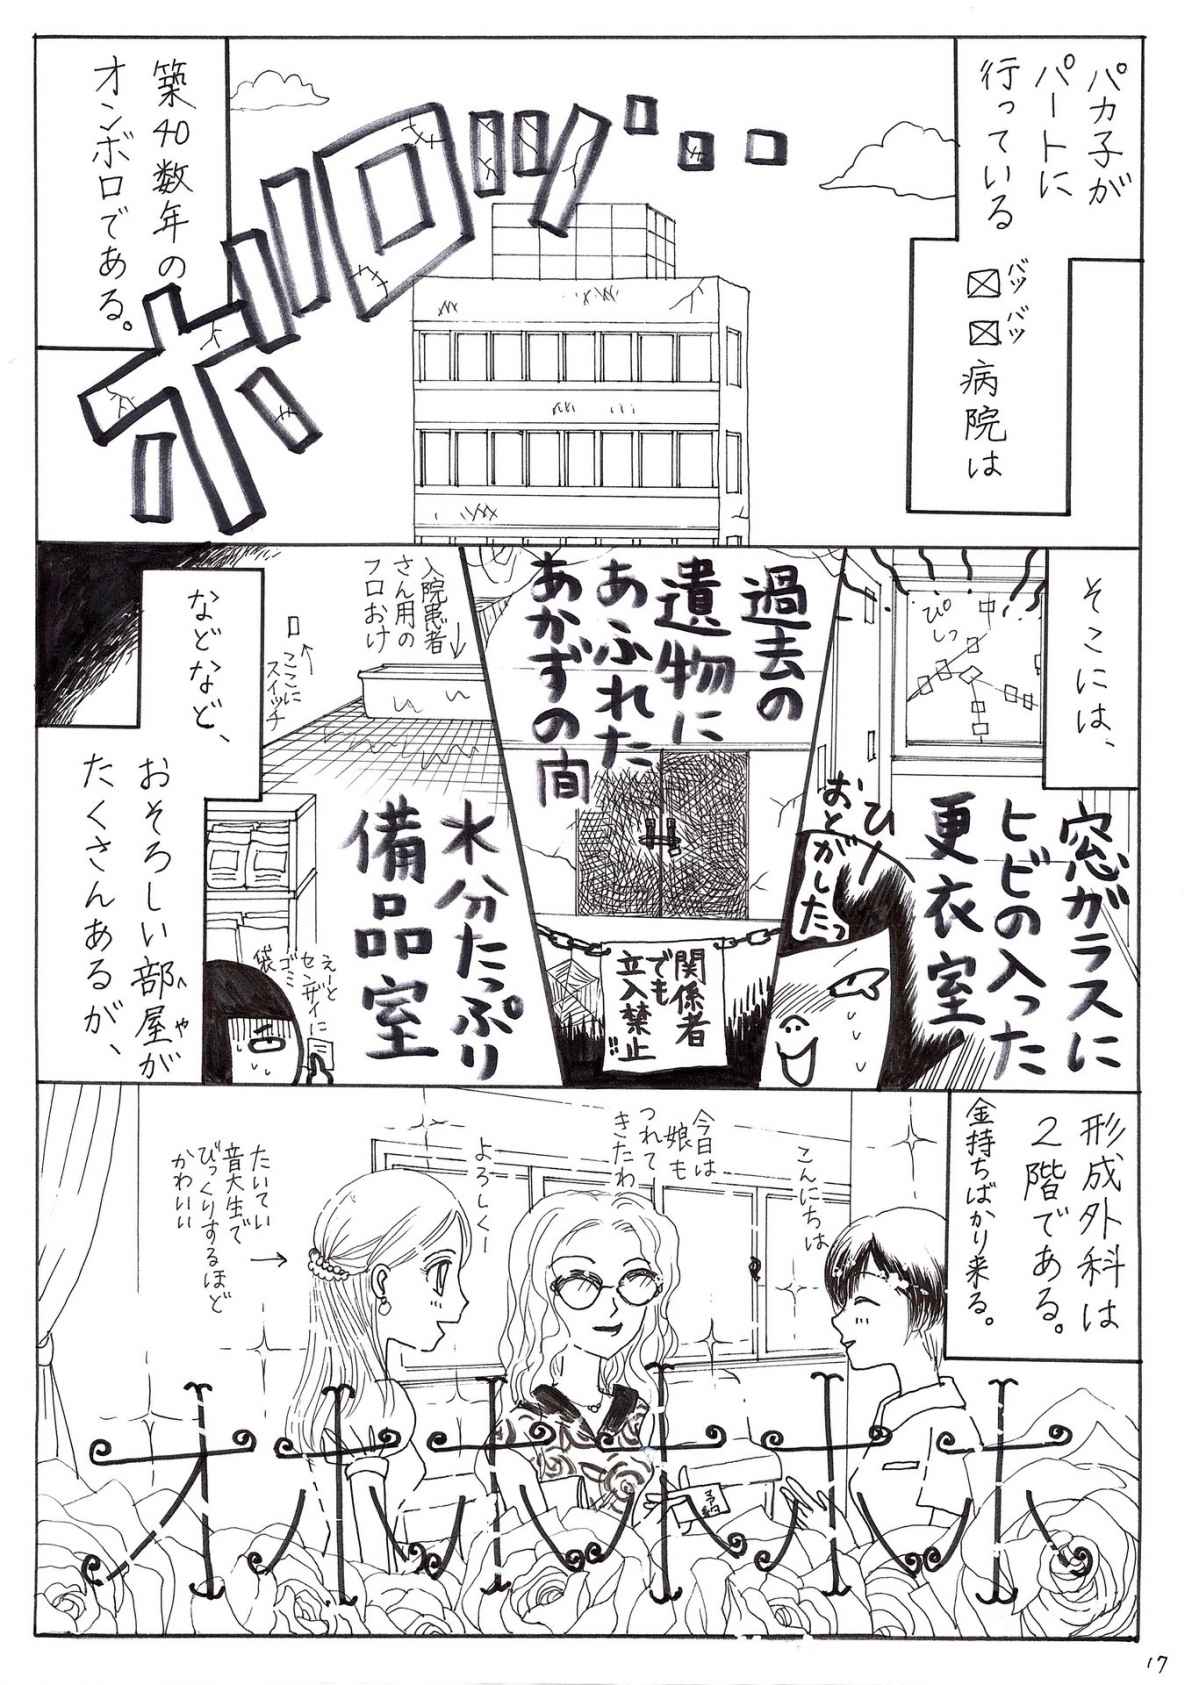 パカ子が
パートに
行っている
バツ バツ
☒☒病院は
ボロッ…
築40数年の
オンボロである。
そこには、
ぴしっ
中
窓ガラスに
ヒビの入った
更衣室
ひー
おとがしたっ
過去の
遺物に
あふれた
あかずの間
関係者
でも
立入禁止‼
入院患者
さん用の
フロおけ
ここに
スイッチ
水分たっぷり
備品室
えーと
センザイに
ゴミ
袋
などなど、
おそろしい部屋が
へや
たくさんあるが、
形成外科は
2階である。
金持ちばかり来る。
こんにちは
今日は
娘も
つれて
きたわ
よろしくー
たいてい
音大生で
びっくりするほど
かわいい
予約
オホホホホホ
17